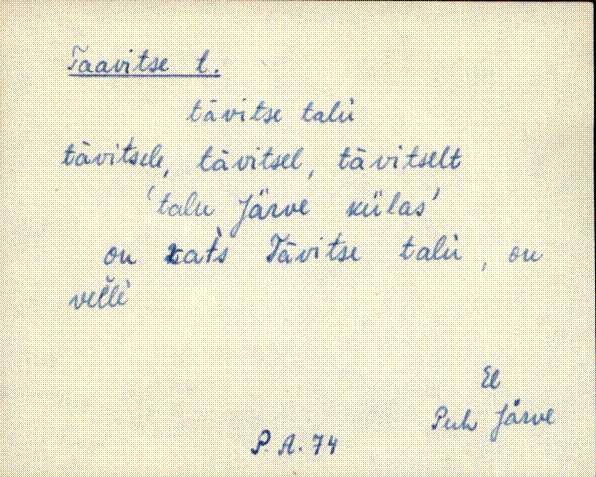 Taavitse t.
tāvitse talu
tāvitsele, tāvitsel, tāvitselt
'talu Järve külas'
on kat̀s Tāvitse talù, on
velle
El
Puh Järve
P. A. 74